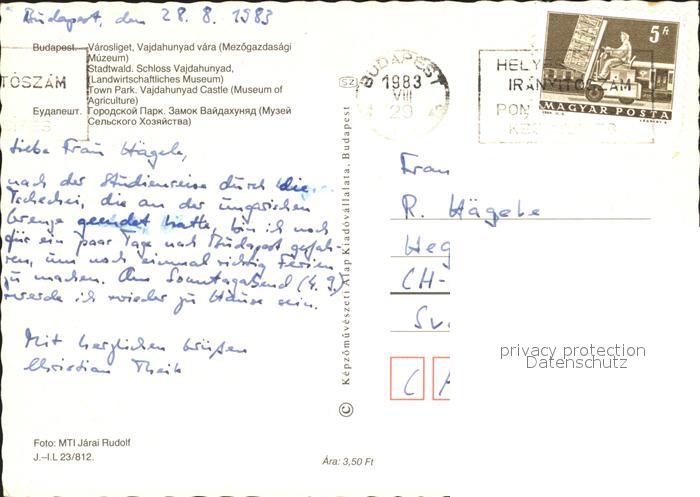 Budapest, den 28.8.1983
Budapest. Városliget, Vajdahunyad vára (Mezőgazdasági
Múzeum)
Stadtwald. Schloss Vajdahunyad,
(Landwirtschaftliches Museum)
Town Park. Vajdahunyad Castle (Museum of
Agriculture)
Будапешт. Городской Парк. Замок Вайдахуняд (Музей
Сельского Хозяйства)
TÓSZÁM
Liebe Frau Hägele,
nach der Studienreise durch die
Tschechei, die an der ungarischen
Grenze geendet hatte, bin ich noch
für ein paar Tage nach Budapest gefah-
ren, um noch einmal richtig Ferien
zu machen. Am Sonntagabend (4.9.)
werde ich wieder zu Hause sein.
Mit herzlichen Grüßen
Christian
Foto: MTI Járai Rudolf
J.–I.L 23/812.
Ára: 3,50 Ft
© Képzőművészeti Alap Kiadóvállalata, Budapest
SZ
BUDAPEST
1983
VIII
29
HELYES
IRÁNYÍTÓSZÁM
PON
5 Ft
MAGYAR POSTA
Frau
R. Hägele
Heg
CH-
Sv
C
privacy protection
Datenschutz